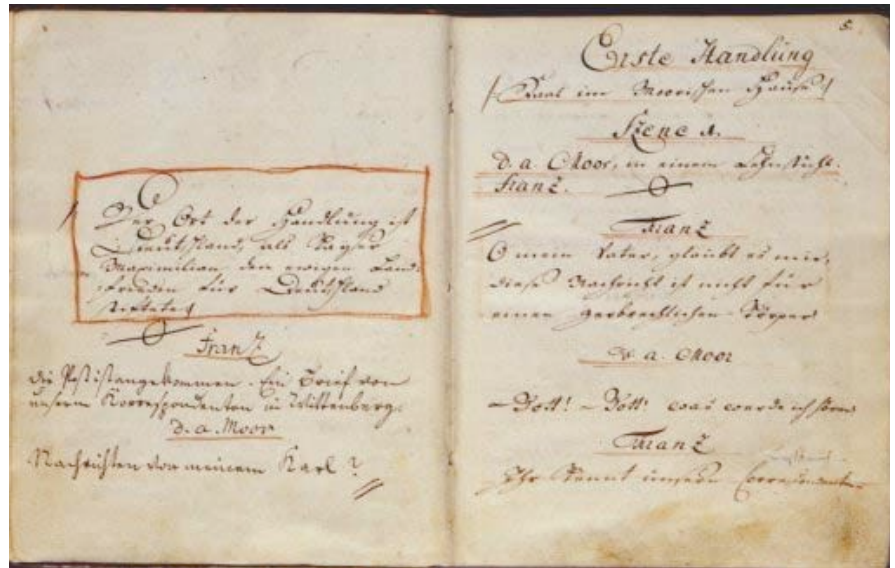 Der Ort der Handlung ist
Deutschland, als Kayser
Maximilian den ewigen Land-
frieden für Deutschland
stiftete
Franz
die Post ist angekommen. Ein Brief von
unserm Korrespondenten in Wittenberg.
D. a. Moor
Nachrichten von meinem Karl?
5.
Erste Handlung
Saal im Moorischen Hause
Szene 1.
D. a. Moor, in einem Lehnstuhl.
Franz.
Franz
O mein Vater, glaubt es mir,
diese Nachricht ist nicht für
einen zerbrechlichen Körper
D. a. Moor
– Gott! – Gott! was werde ich hören
Franz
Ihr kennt unsern Correspondenten